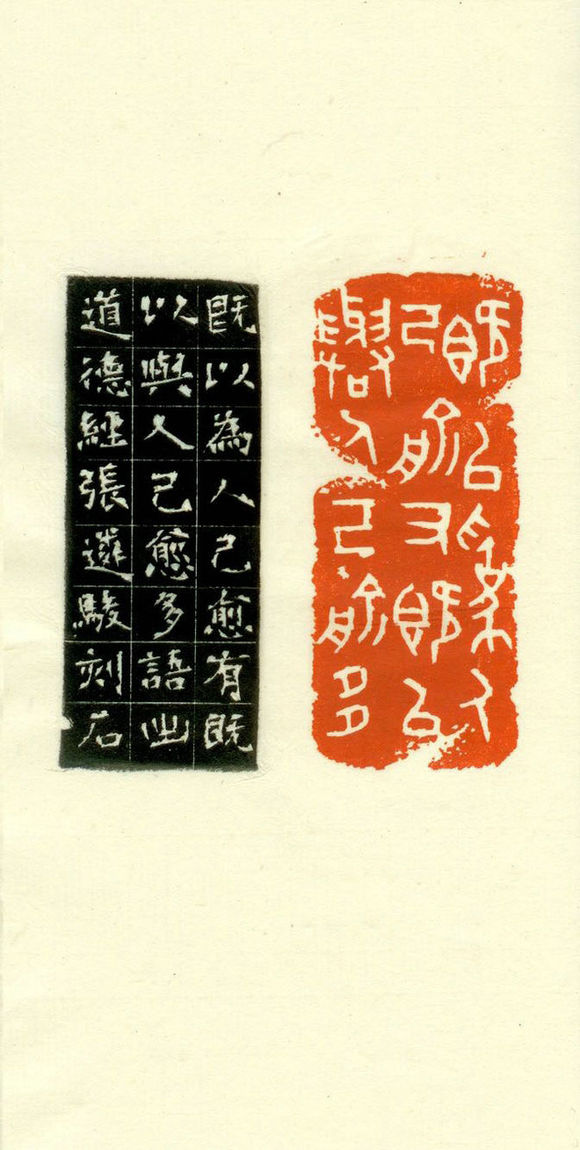 既以為人
己愈有既以
與人己愈多
既以為人己愈有既
以與人己愈多語出
道德經張遴駿刻石